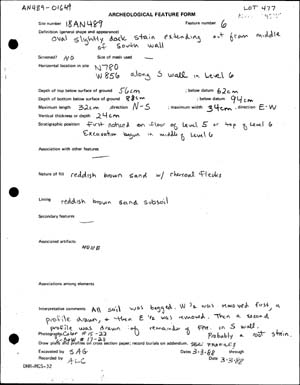 AN489-01649
LOT 477
ARCHEOLOGICAL FEATURE FORM
Site number 18AN489 Feature number 6
Definition (general shape and appearance)
Oval slightly dark stain extending out from middle
of South wall
Screened? NO Size of mesh used —
Horizontal location in site N780
W856 along S wall in Level 6
Depth of top below surface of ground 56cm ; below datum 62cm
Depth of bottom below surface of ground 88cm ; below datum 94cm
Maximum length 32cm direction N-S ; maximum width 34cm direction E-W
Vertical thickness or depth 24cm
Stratigraphic position First noticed on floor of Level 5 or top of Level 6
Excavator begun in middle of Level 6
Association with other features
Nature of fill reddish brown sand w/ charcoal flecks
Lining reddish brown sand subsoil
Secondary features
Associated artifacts
NONE
Associations among elements
Interpretation and comments All soil was bagged. W 1/2 was removed first, a
profile drawn, + then E 1/2 was removed. Then a second
profile was drawn of remainder of Fea. in S wall.
Photographs Color # 15-22 Probably a root stain.
Draw plans and profiles on cross section paper; record burials on addendum.
Excavated by SAG Date: 3-3-88 through
Recorded by Date 3-3-88
DNR-MGS-32